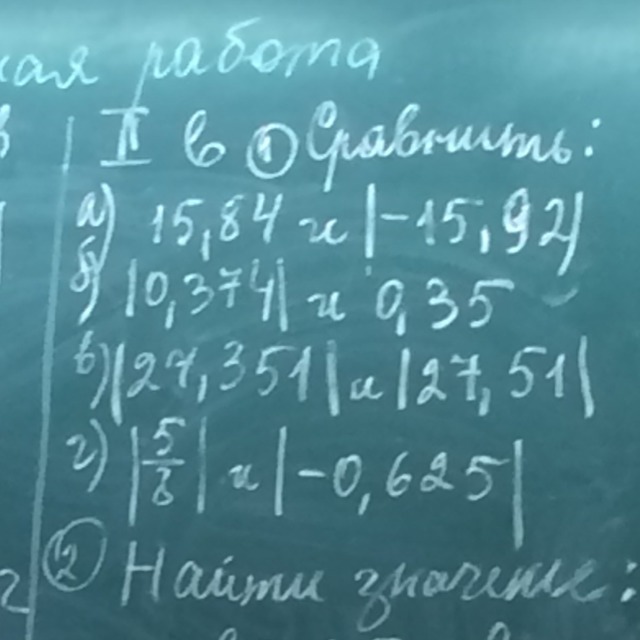 кая работа
II в ① Сравнить:
а) 15,84 и |-15,92|
б) |0,374| и 0,35
в) |27,351| и |27,51|
г) |5/8| и |-0,625|
② Найти значение: